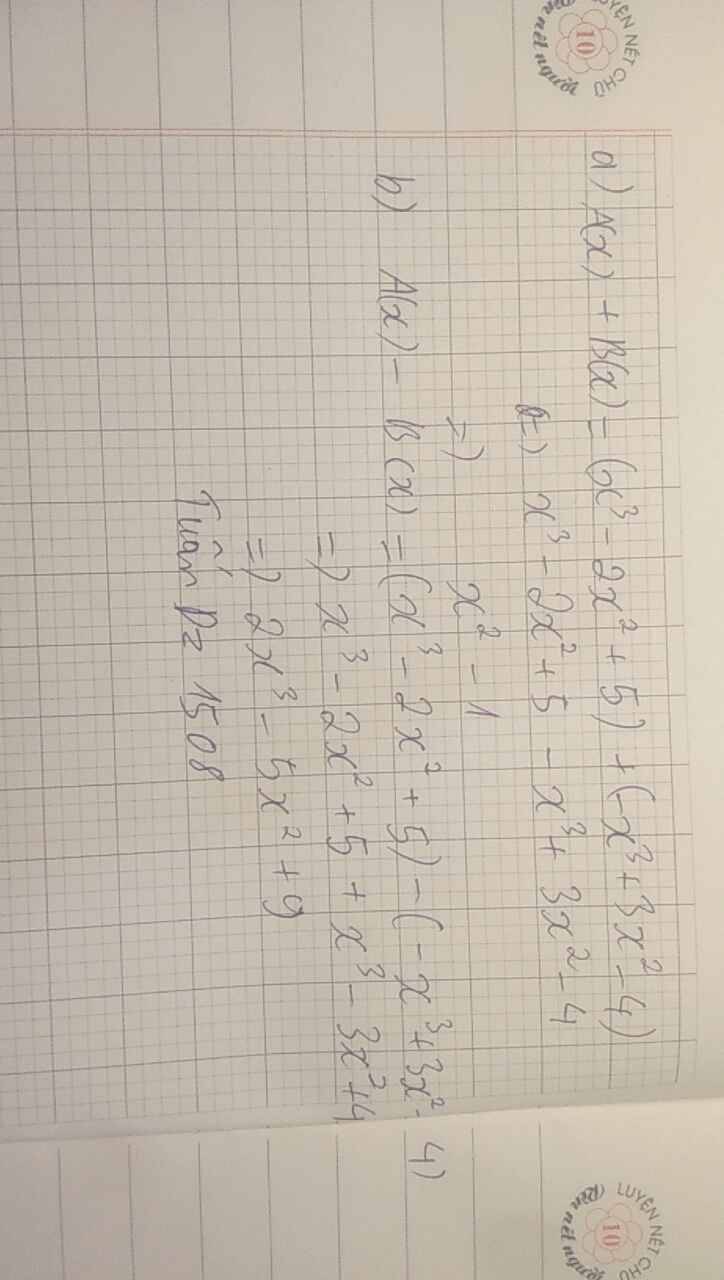 LUYỆN NÉT CHỮ
10
Rèn nết người
a) A(x) + B(x) = (x³ - 2x² + 5) + (-x³ + 3x² - 4)
=) x³ - 2x² + 5 - x³ + 3x² - 4
=) x² - 1
b) A(x) - B(x) = (x³ - 2x² + 5) - (-x³ + 3x² - 4)
=) x³ - 2x² + 5 + x³ - 3x² + 4
=) 2x³ - 5x² + 9
Tuấn Dz 1508
LUYỆN NÉT CHỮ
10
Rèn nết người